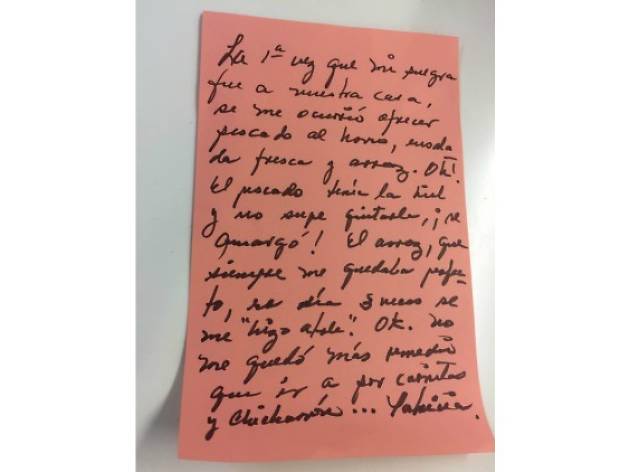 La 1ª vez que mi suegra
fue a nuestra casa,
se me ocurrió ofrecer
pescado al horno, ensala
da fresca y arroz. Ok!
El pescado tenía la hiel
y no supe quitarla, ¡se
amargó! El arroz, que
siempre me quedaba perfec-
to, ese día se
me "hizo atole". Ok. no
me quedó más remedio
que ir a por carnitas
y chicharrón...